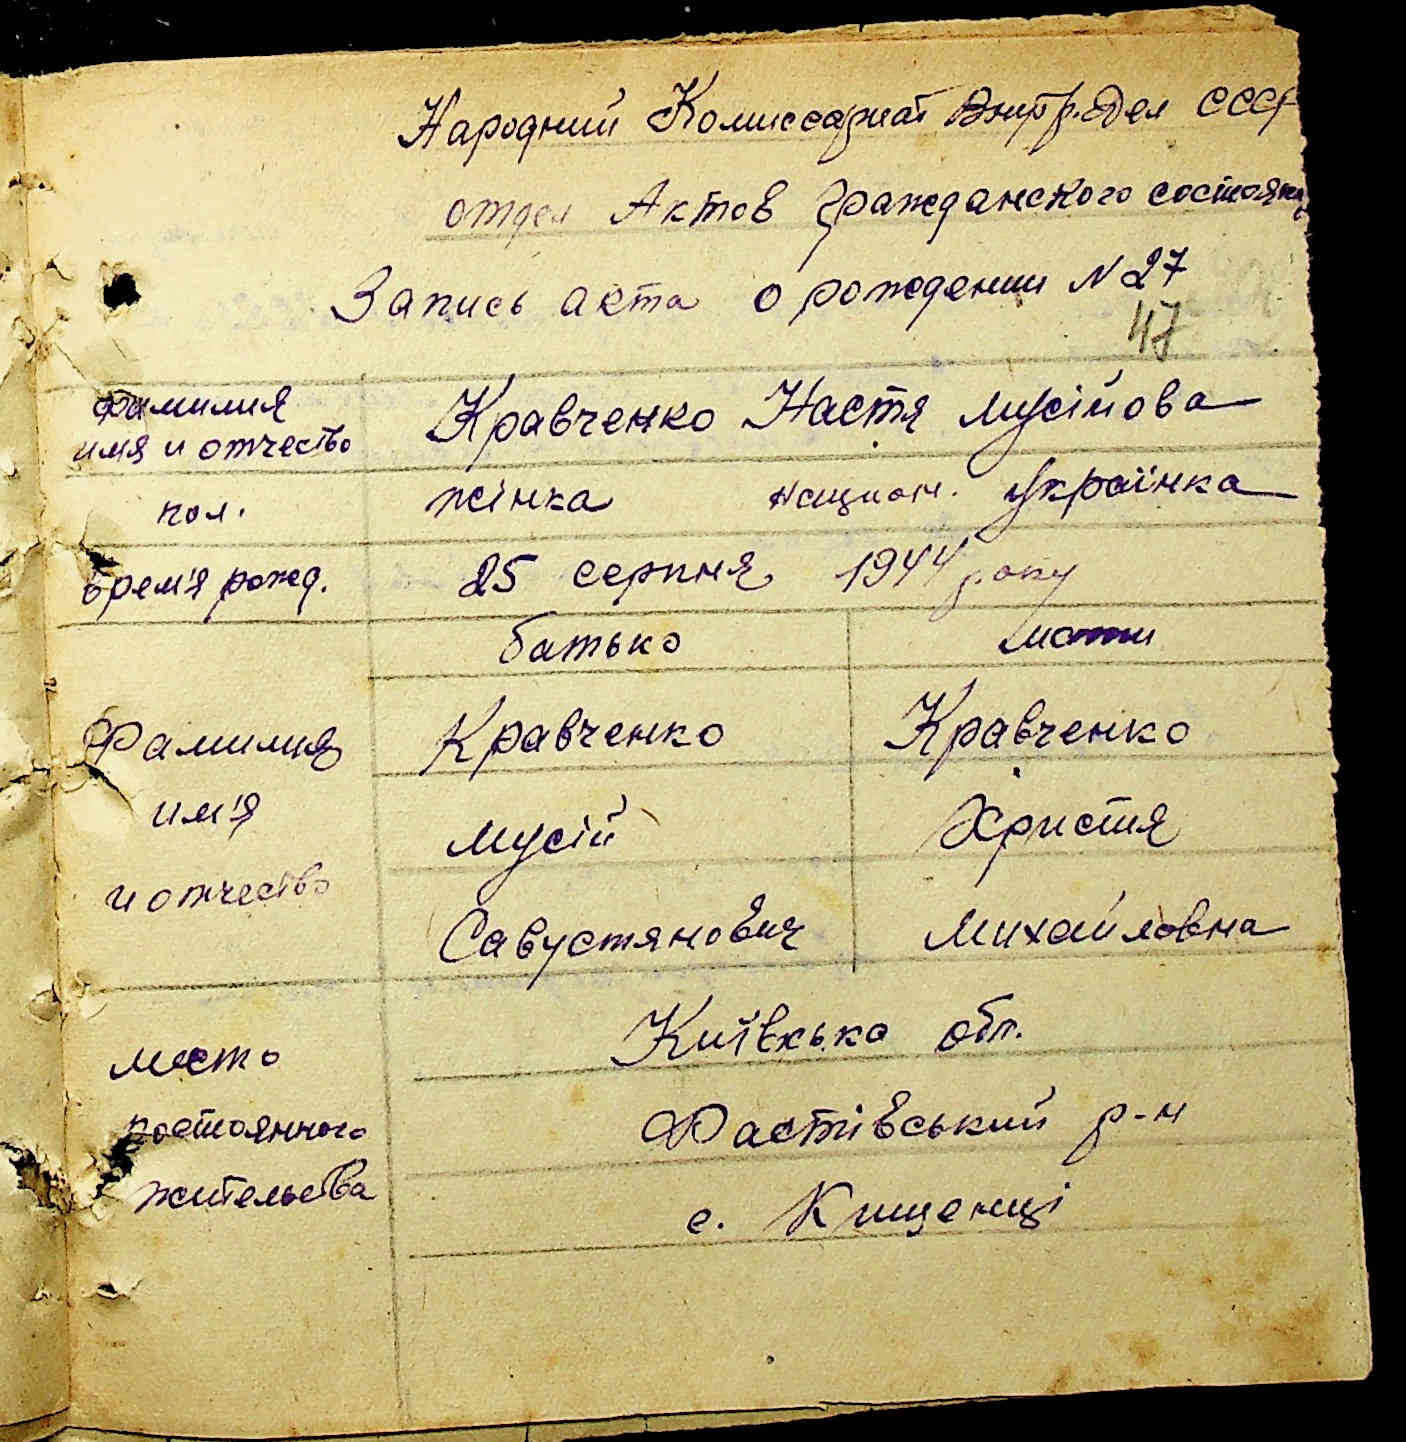 Народний Комиссариат Внутр. Дел СССР
отдел Актов гражданского состояния
Запись акта о рождении N 27
47
Фамилия
имя и отчество
Кравченко Настя Мусійова
пол.
жінка национ. Українка
врем'я рожд.
25 серпня 1944 року
батько мати
Фамилия Кравченко Кравченко
им'я Мусій Христя
и отчество Савустянович Михайловна
место Київська обл.
постоянного Фастівський р-н
жительства с. Кищенці